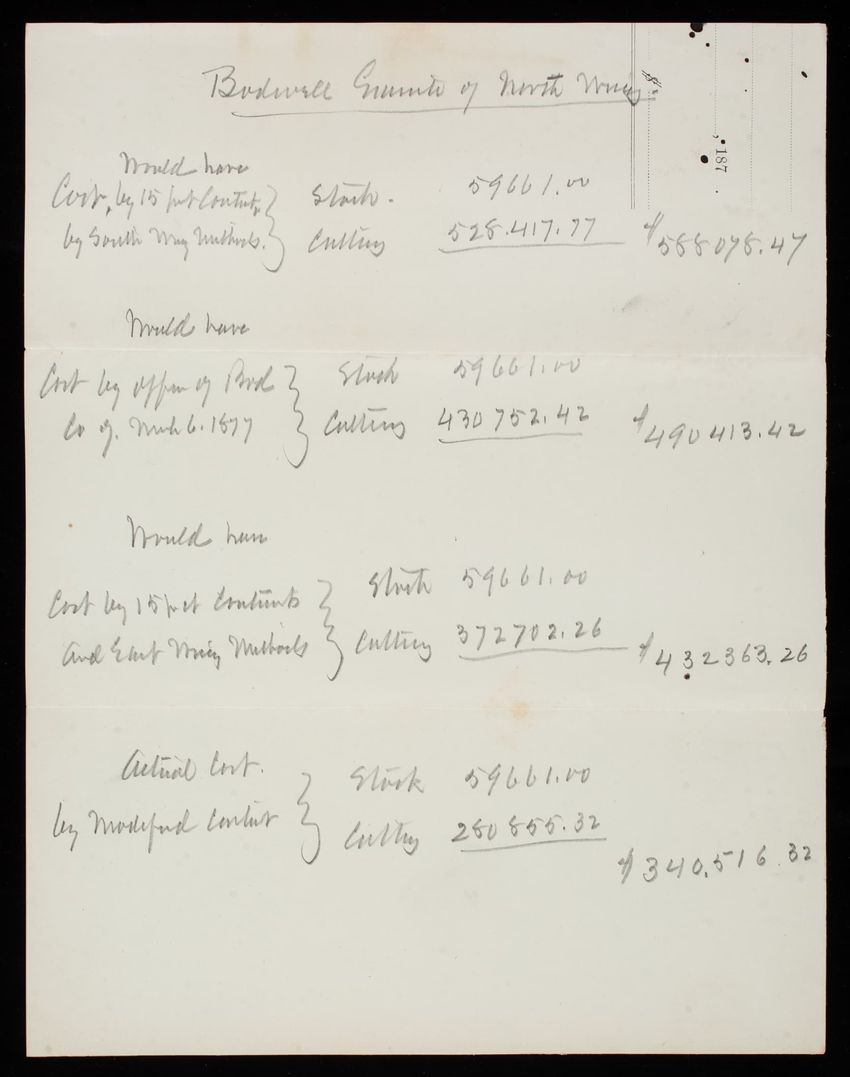 Bodwell Granite of North Wing
$
, 187 .
Would have
Cost, by 15 pr ct Contract, Stock. 59661.00
by South Wing Methods. Cutting 528.417.77 $588078.47
Would have
Cost by offer of Bod Stock 59661.00
Co of. 6. 1877 Cutting 430752.42 $490413.42
Would have
Cost by 15 pr ct Contracts Stock 59661.00
And East Wing Methods Cutting 372702.26 $432363.26
Actual Cost.
by Modified Contract Stock 59661.00
Cutting 280855.32
$340,516.32